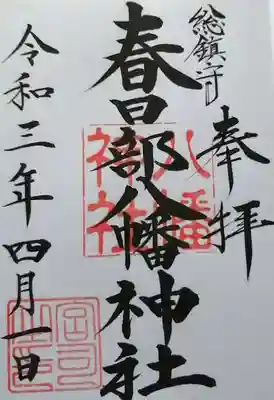 総鎮守
奉拝
春日部八幡神社
八幡神社
令和三年四月一日
宮司之印